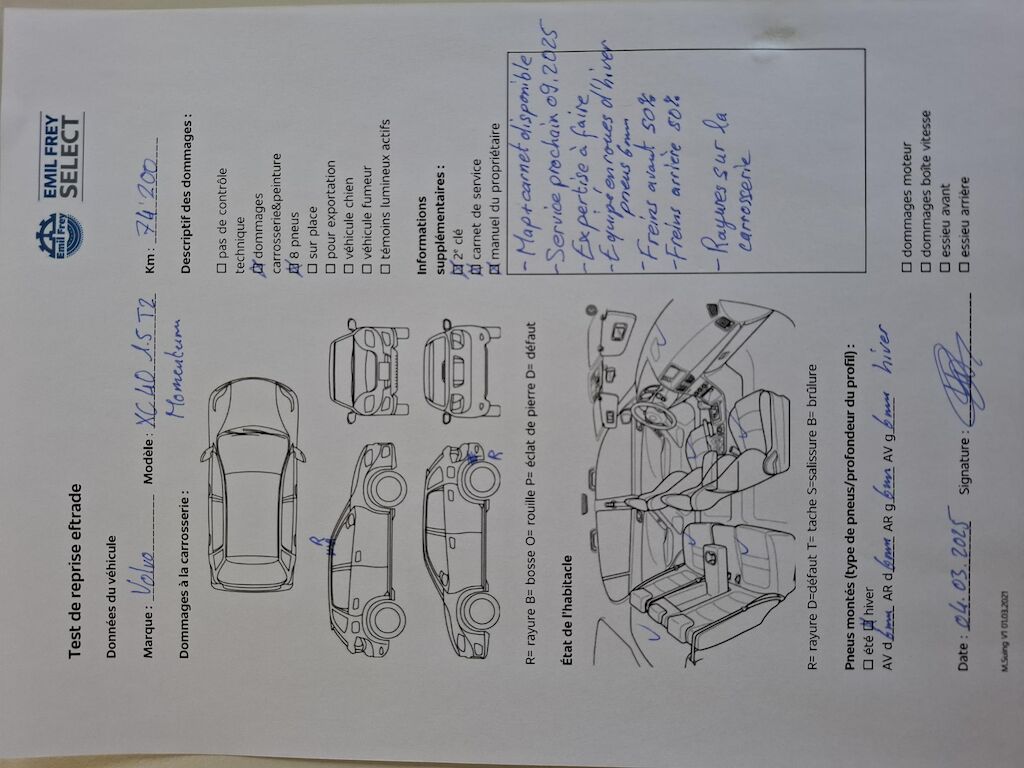 Test de reprise eftrade
Emil Frey
EMIL FREY
SELECT
Données du véhicule
Marque : Volvo Modèle : XC40 1.5 T2 Km : 74'200
Momentum
Dommages à la carrosserie :
R
R
R= rayure B= bosse O= rouille P= éclat de pierre D= défaut
Descriptif des dommages :
☐ pas de contrôle
technique
☒ dommages
carrosserie&peinture
☒ 8 pneus
☐ sur place
☐ pour exportation
☐ véhicule chien
☐ véhicule fumeur
☐ témoins lumineux actifs
Informations
supplémentaires :
☒ 2° clé
☒ carnet de service
☒ manuel du propriétaire
État de l'habitacle
R= rayure D=défaut T= tache S=salissure B= brûlure
- Map+carnet disponible
- Service prochain 09.2025
- Expertise à faire
- Equipé en roues d'hiver
pneus 6mm
- Freins avant 50%
- Freins arrière 80%
- Rayures sur la
carrosserie
Pneus montés (type de pneus/profondeur du profil) :
☐ été ☒ hiver
AV d 6mm AR d 6mm AR g 6mm AV g 6mm hiver
☐ dommages moteur
☐ dommages boîte vitesse
☐ essieu avant
☐ essieu arrière
Date : 04.03.2025 Signature :
M.Suing V1 01.03.2021